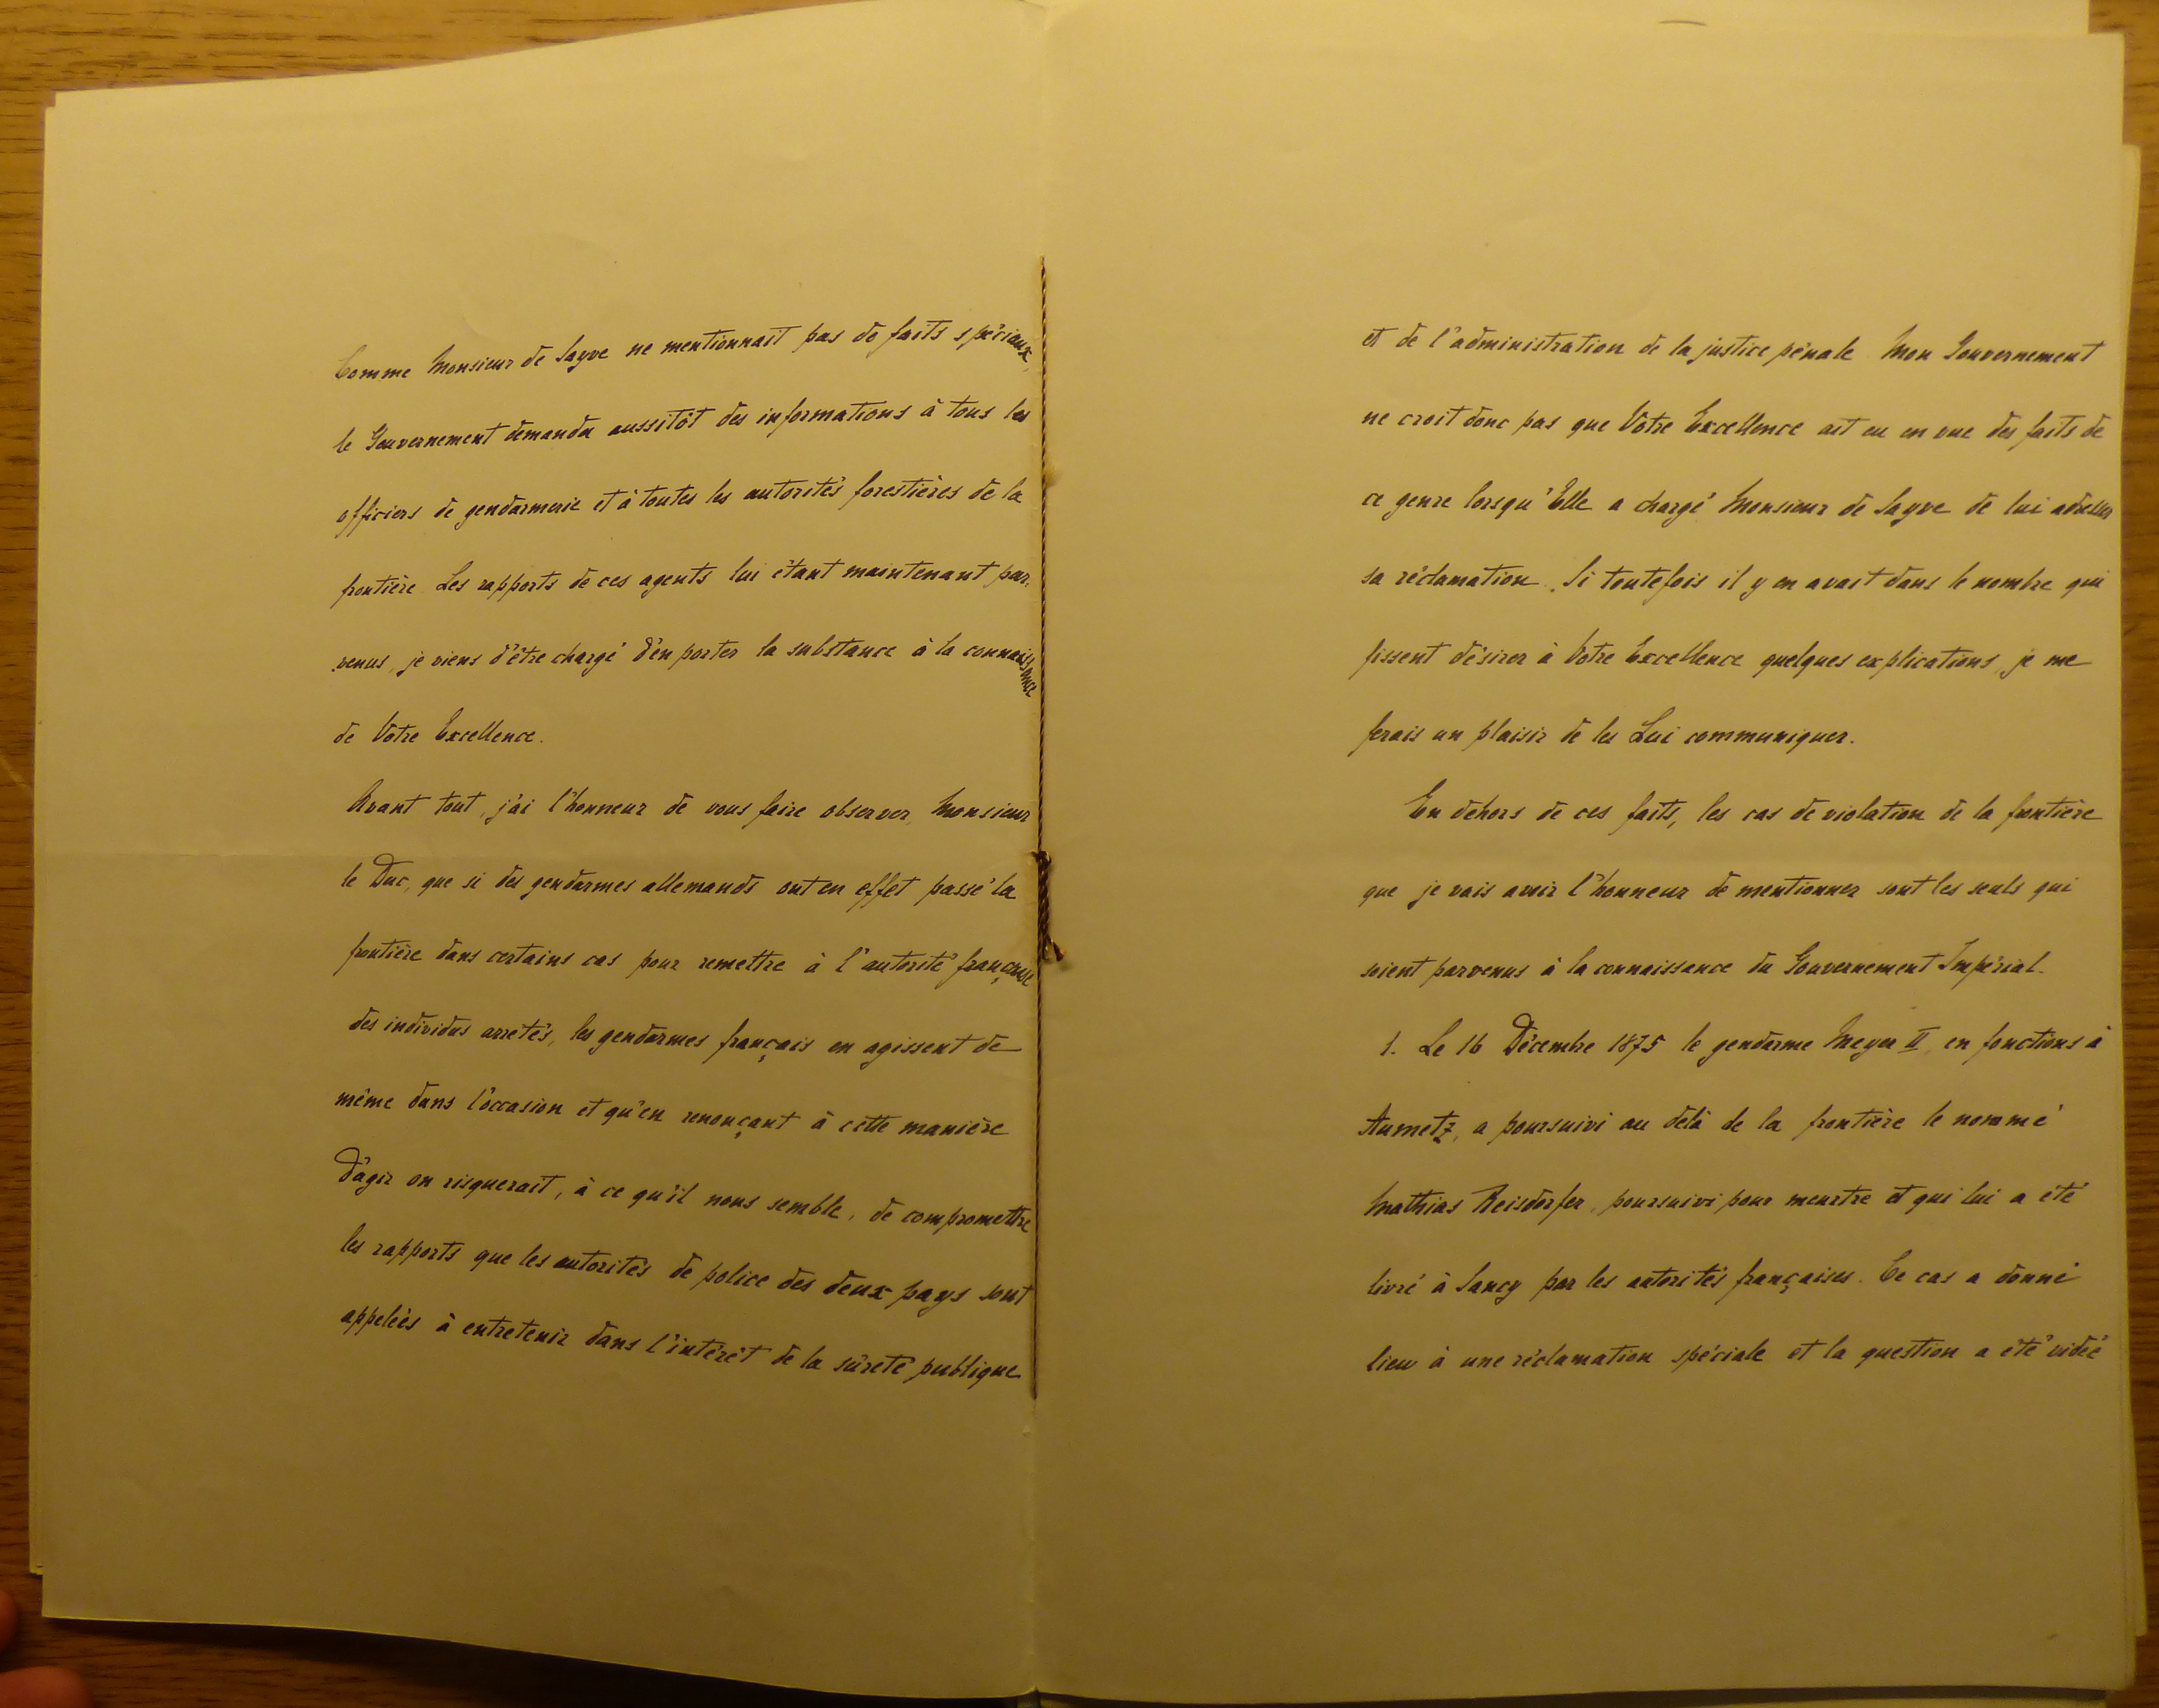 Comme Monsieur de Sayve ne mentionnait pas de faits spéciaux,
le Gouvernement demanda aussitôt des informations à tous les
officiers de gendarmerie et à toutes les autorités forestières de la
frontière. Les rapports de ces agents lui étant maintenant par-
venus, je viens d'être chargé d'en porter la substance à la connaissance
de Votre Excellence.
Avant tout, j'ai l'honneur de vous faire observer, Monsieur
le Duc, que si des gendarmes allemands ont en effet passé la
frontière dans certains cas pour remettre à l'autorité française
des individus arrêtés, les gendarmes français en agissent de
même dans l'occasion et qu'en renonçant à cette manière
d'agir on risquerait, à ce qu'il nous semble, de compromettre
les rapports que les autorités de police des deux pays sont
appelées à entretenir dans l'intérêt de la sûreté publique
et de l'administration de la justice pénale. Mon Gouvernement
ne croit donc pas que Votre Excellence ait eu en vue des faits de
ce genre lorsqu'Elle a chargé Monsieur de Sayve de lui adresser
sa réclamation. Si toutefois il y en avait dans le nombre qui
fissent désirer à Votre Excellence quelques explications, je me
ferais un plaisir de les Lui communiquer.
En dehors de ces faits, les cas de violation de la frontière
que je vais avoir l'honneur de mentionner sont les seuls qui
soient parvenus à la connaissance du Gouvernement Impérial.
1. Le 16 Décembre 1875 le gendarme Meyer II, en fonctions à
Aumetz, a poursuivi au delà de la frontière le nommé
Mathias Reisdorfer, poursuivi pour meurtre et qui lui a été
livré à Sancy par les autorités françaises. Ce cas a donné
lieu à une réclamation spéciale et la question a été vidée